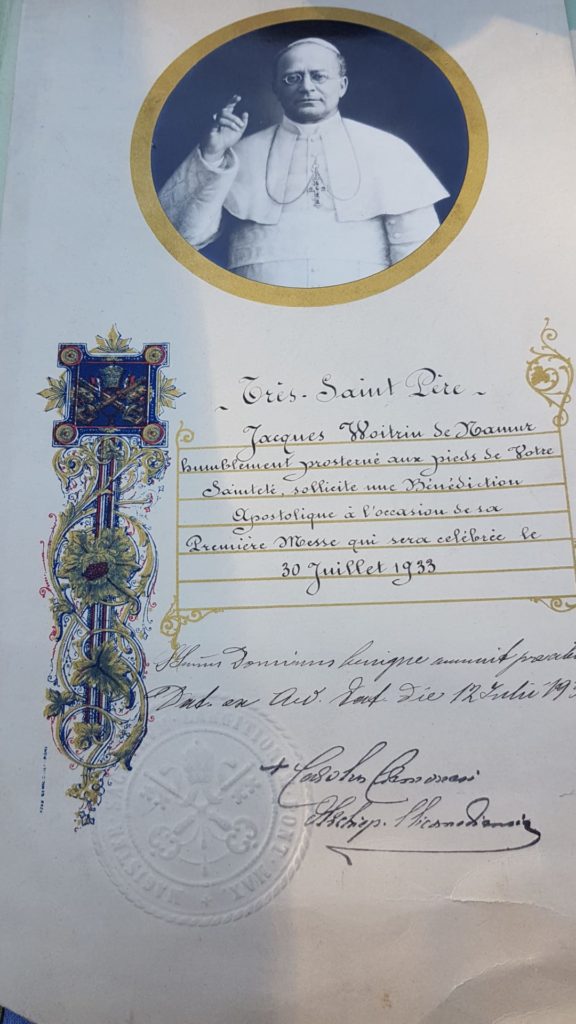 Très-Saint Père
Jacques Woitrin de Namur
humblement prosterné aux pieds de Votre
Sainteté, sollicite une Bénédiction
Apostolique à l'occasion de sa
Première Messe qui sera célébrée le
30 Juillet 1933
Dominus benigne annuit
Dat. ex Aed. Vat. die 12 Julii
MAGISTER
PONT. MAX